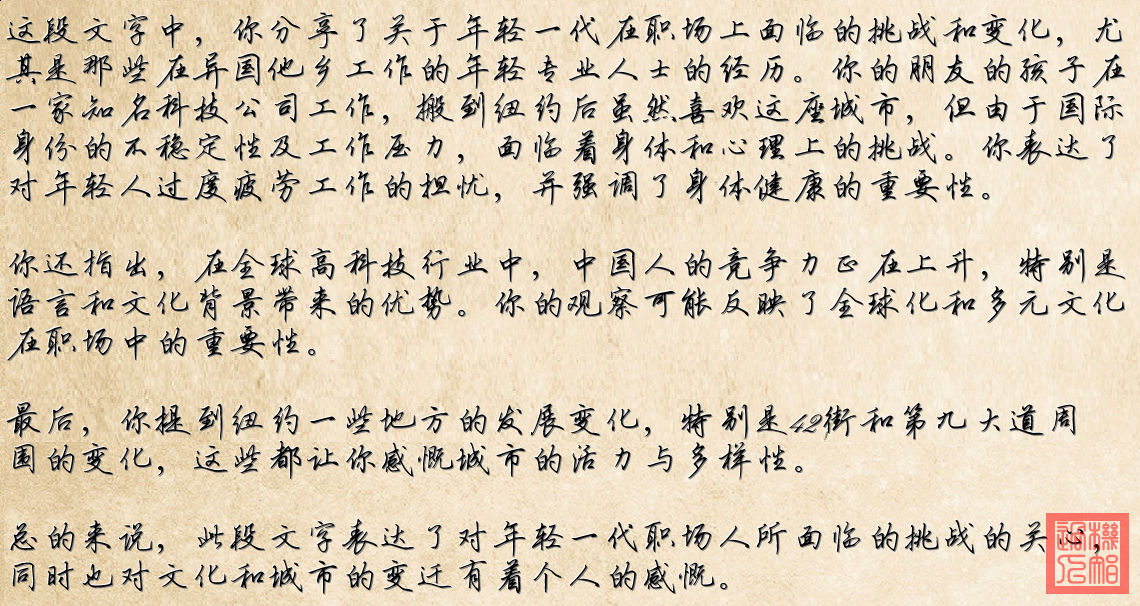 这段文字中，你分享了关于年轻一代在职场上面临的挑战和变化，尤
其是那些在异国他乡工作的年轻专业人士的经历。你的朋友的孩子在
一家知名科技公司工作，搬到纽约后虽然喜欢这座城市，但由于国际
身份的不稳定性及工作压力，面临着身体和心理上的挑战。你表达了
对年轻人过度疲劳工作的担忧，并强调了身体健康的重要性。
你还指出，在全球高科技行业中，中国人的竞争力正在上升，特别是
语言和文化背景带来的优势。你的观察可能反映了全球化和多元文化
在职场中的重要性。
最后，你提到纽约一些地方的发展变化，特别是42街和第九大道周
围的变化，这些都让你感慨城市的活力与多样性。
总的来说，此段文字表达了对年轻一代职场人所面临的挑战的关心，
同时也对文化和城市的变迁有着个人的感慨。